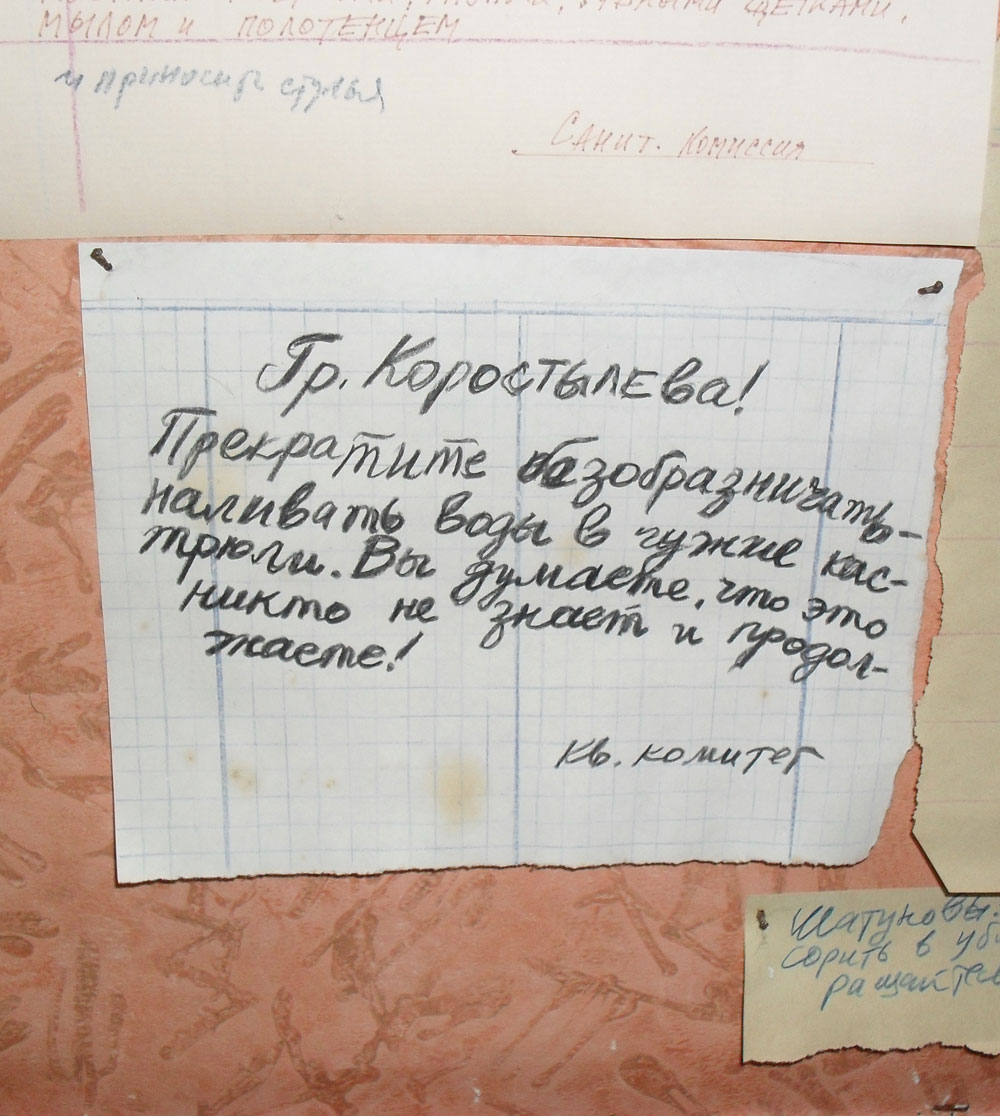 зубными щетками,
мылом и полотенцем
и приносить стулья
Санит. Комиссия
Гр. Коростылева!
Прекратите безобразничать-
наливать воды в чужие кас-
трюли. Вы думаете, что это
никто не знает и продол-
жаете!
кв. комитет
Шатуновы.
сорить в